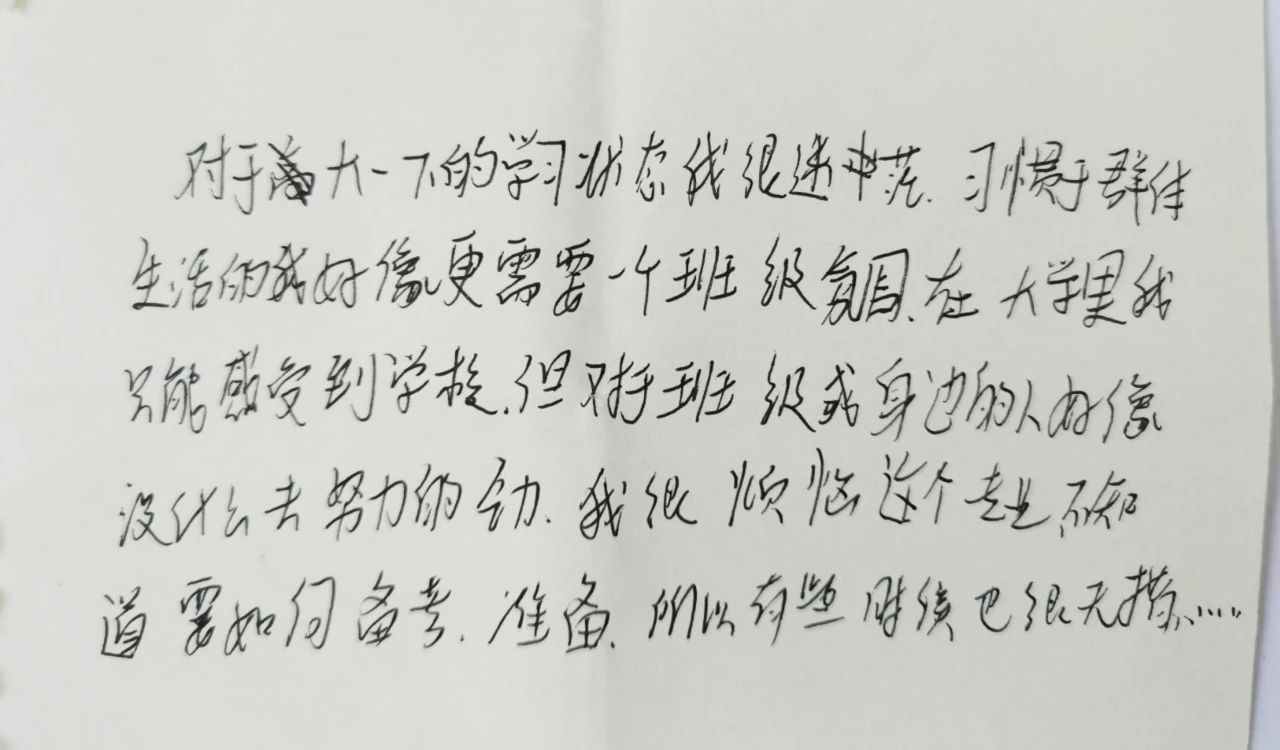 对于大一下的学习状态我很迷茫.习惯于群体
生活的我好像更需要一个班级氛围.在大学里我
只能感受到学校.但对于班级或身边的人好像
没什么去努力的动.我很烦恼这个专业,不知
道要如何备考.准备.所以有些时候也很无措......